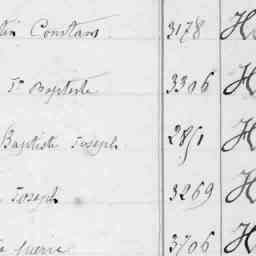 Constans 3178 H
Jn Baptiste 3306 H
Baptiste Joseph 2851 H
Joseph 3269 H
guerre 3706 H